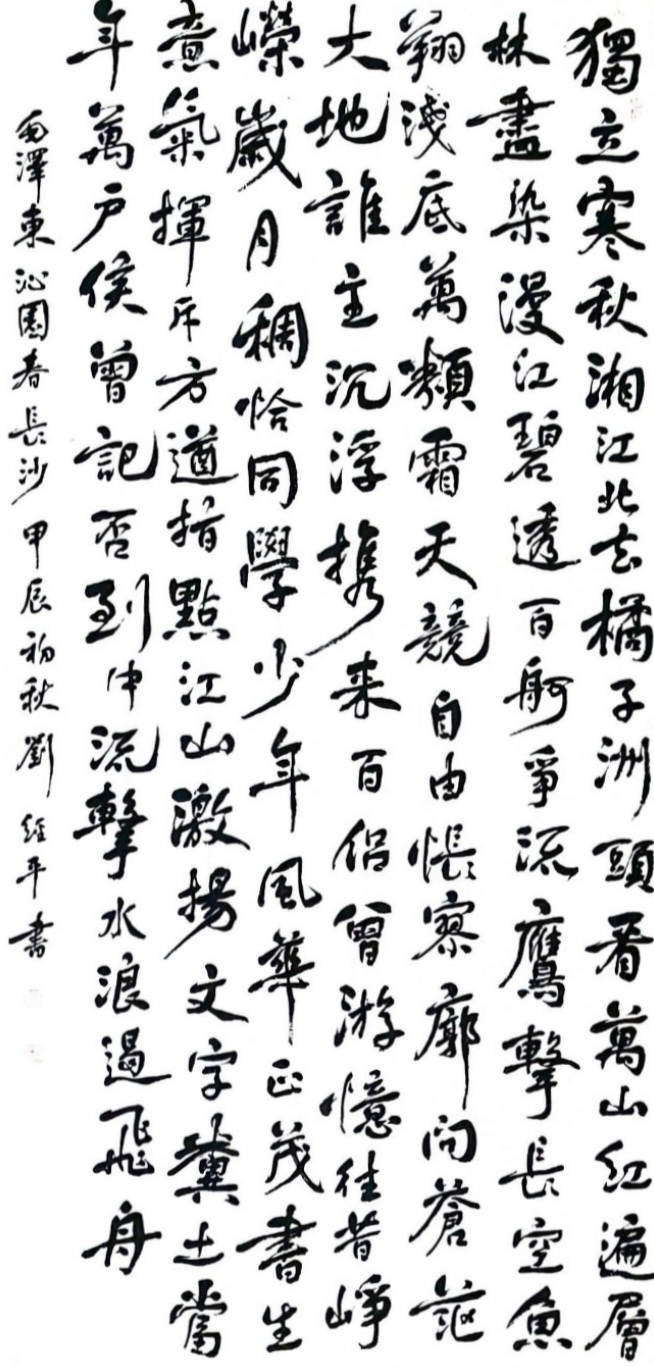 獨立寒秋湘江北去橘子洲頭看萬山紅遍層
林盡染漫江碧透百舸爭流鷹擊長空魚
翔淺底萬類霜天競自由悵寥廓問蒼茫
大地誰主沉浮携来百侣曾游憶往昔崢
嶸歲月稠恰同學少年風華正茂書生
意氣揮斥方遒指點江山激揚文字糞土當
年萬戶侯曾記否到中流擊水浪遏飛舟
毛澤東沁園春長沙甲辰初秋劉經平書